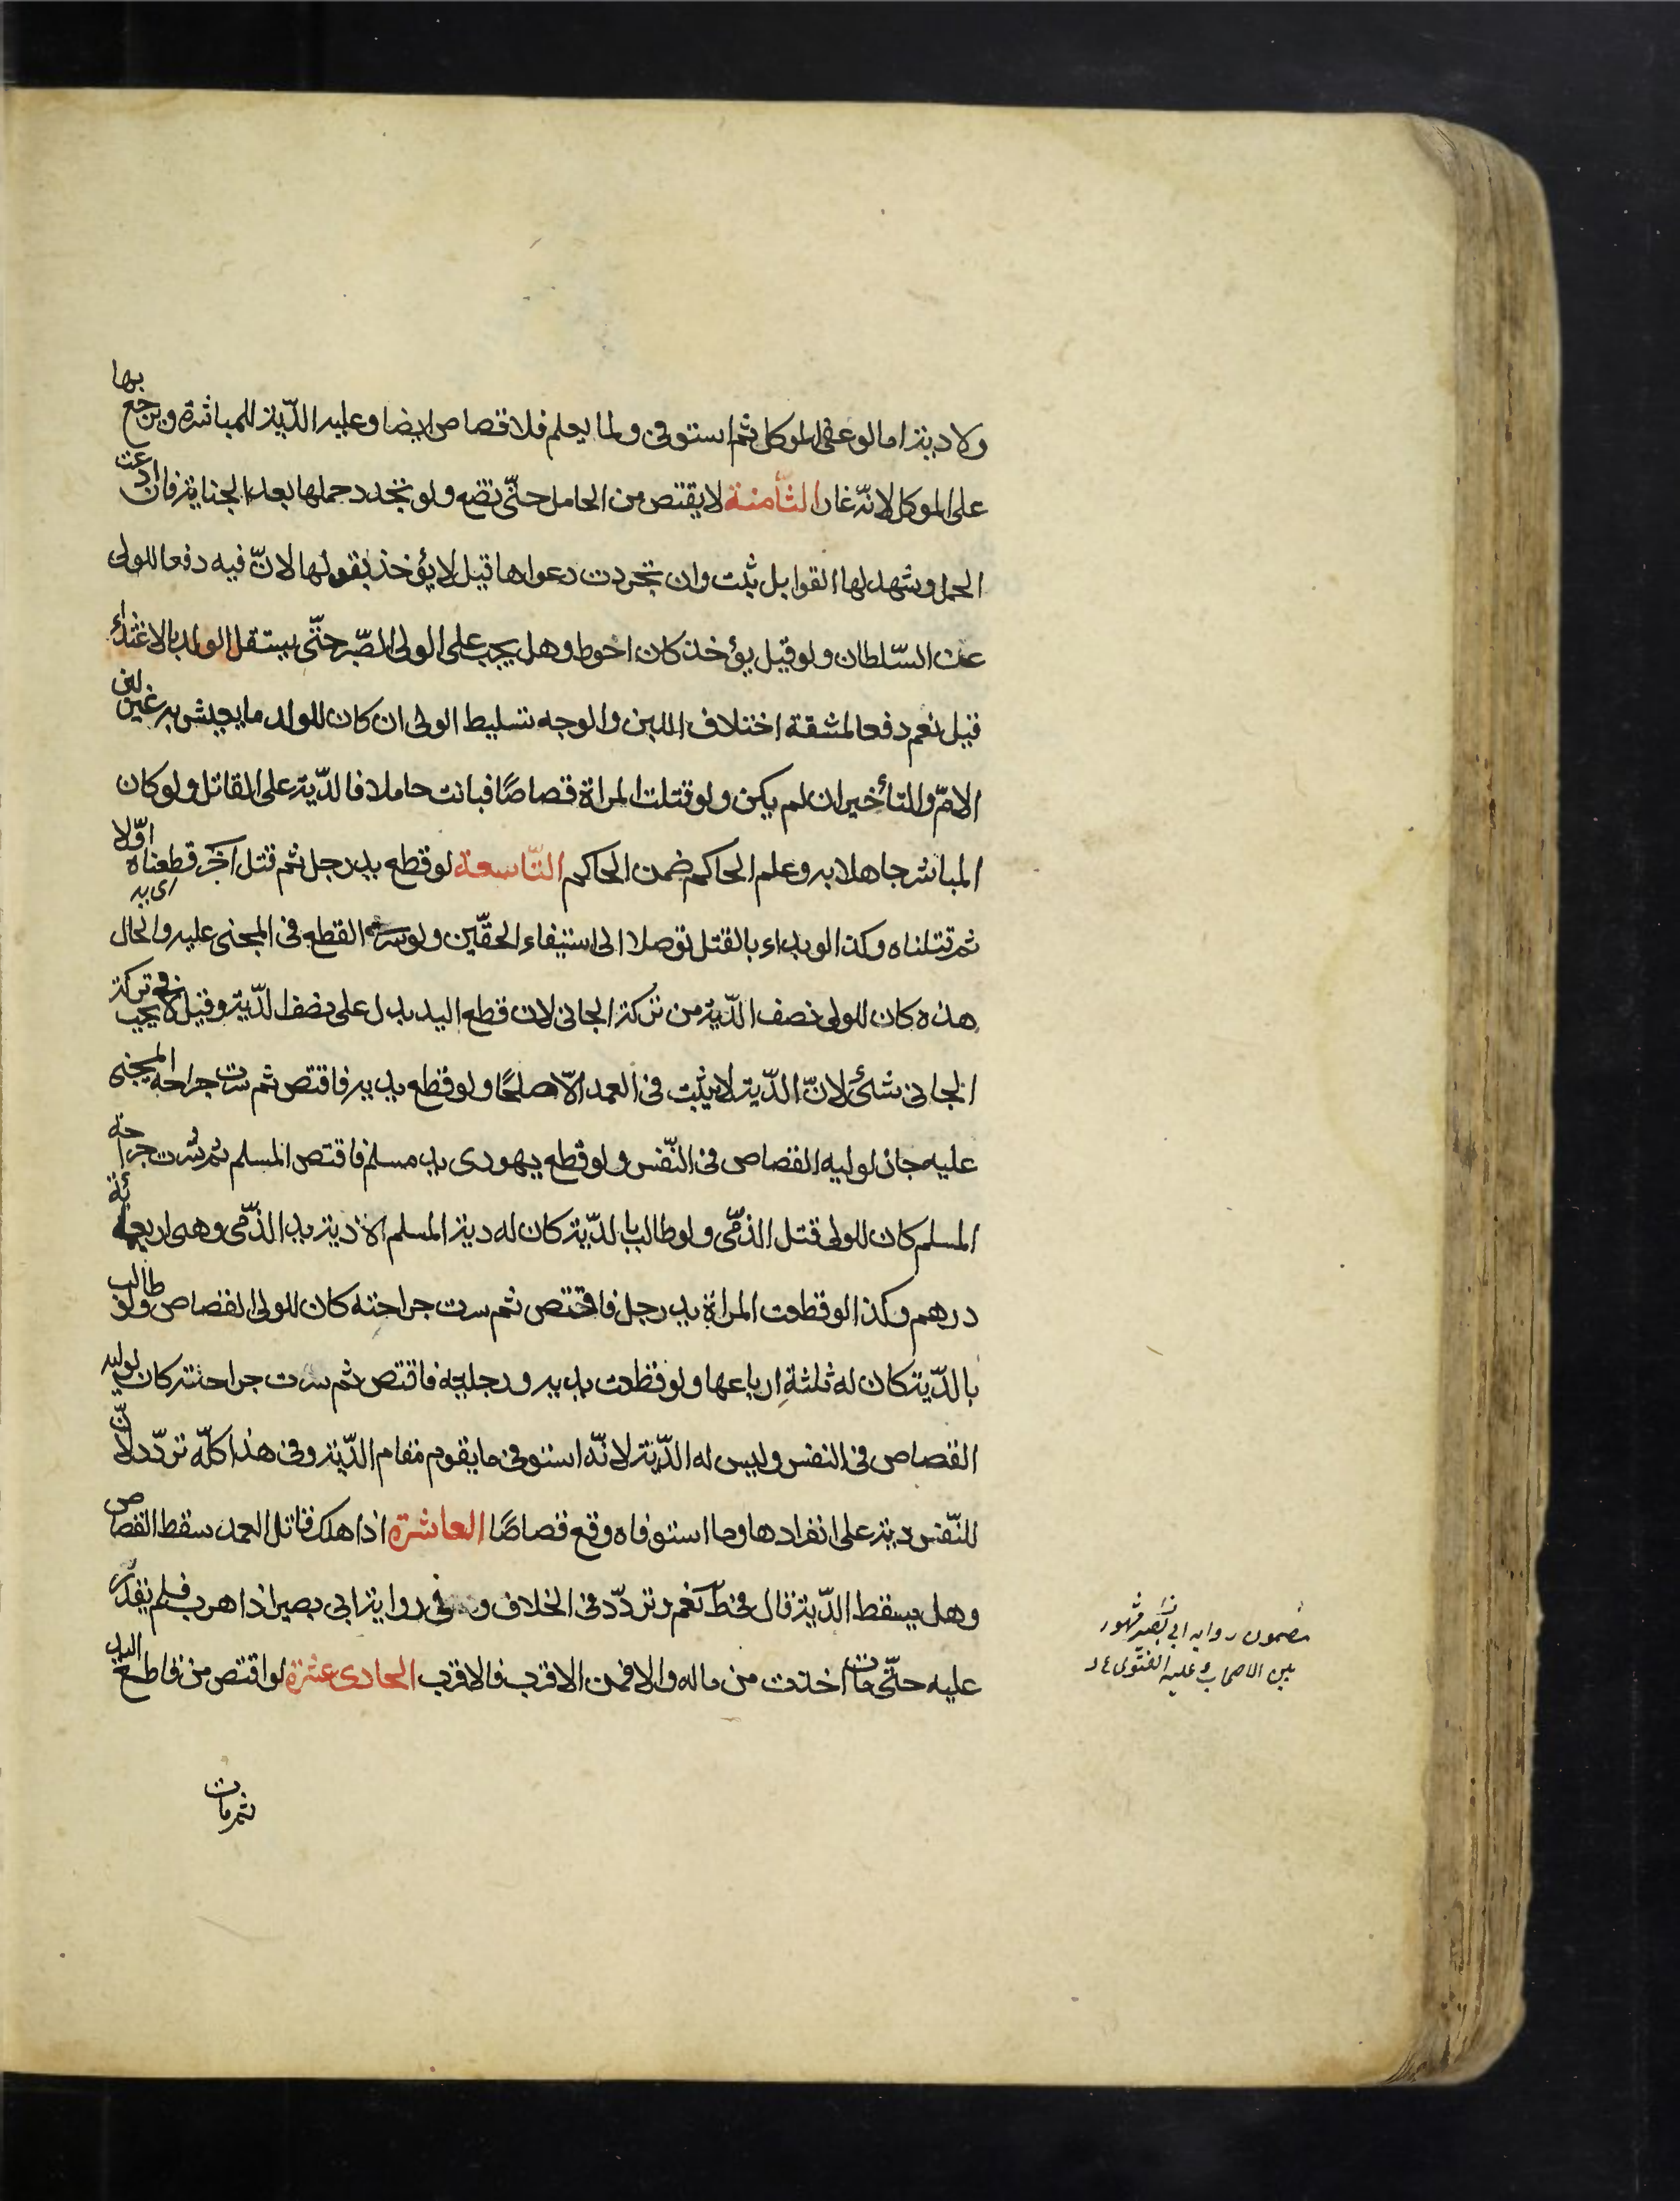 ولا دية اما لو عفى الموكل ثم استوفى ولما يعلم فلا قصاص ايضا وعليه الدّية للمباشرة ويرجع بها
على الموكل لانّه غار الثّامنة لا يقتص من الحامل حتّى تضع ولو تجدد حملها بعد الجناية فان ادعت
الحمل وشهد لها القوابل ثبت وان تجردت دعواها قيل لا يؤخذ بقولها لانّ فيه دفعا للولى
عن السّلطان ولو قيل يؤخذ كان احوط وهل يجب على الولى الصّبر حتّى يستقل الولد بالاغتذاء
قيل نعم دفعا لمشقة اختلاف اللبن والوجه تسليط الولى ان كان للولد ما يعيش به غير لبن
الامّ والتأخير ان لم يكن ولو قتلت المراة قصاصًا فبانت حاملا فالدّية على القاتل ولو كان
المباشر جاهلا به وعلم الحاكم ضمن الحاكم التّاسعة لو قطع يد رجل ثم قتل آخر قطعناه اوّلا
اى يد
ثم قتلناه وكذا لو بداء بالقتل توصلا الى استيفاء الحقّين ولو سرى القطع فى المجنى عليه والحال
هذه كان للولى نصف الدّية من تركة الجانى لان قطع اليد بدل على نصف الدّية وقيل لا يجب فى تركة
الجانى شئ لانّ الدّية لا يثبت فى العمد الّا صلحًا ولو قطع يديه فاقتص ثم سرت جراحة المجنى
عليه جاز لوليه القصاص فى النّفس ولو قطع يهودى يد مسلم فاقتص المسلم ثم سرت جراحة
المسلم كان للولى قتل الذمّى ولو طالب بالدّية كان له دية المسلم الا دية يد الذّمّى وهى اربعمائة
درهم وكذا لو قطعت المراة يد رجل فاقتص ثم سرت جراحته كان للولى القصاص ولو طالب
بالدّية كان له ثلثة ارباعها ولو قطعت يديه ورجليه فاقتص ثم سرت جراحته كان لوليه
القصاص فى النفس وليس له الدّية لانّه استوفى ما يقوم مقام الدّية وفى هذا كلّه تردّد لانّ
للنّفس دية على انفرادها وما استوفاه وقع قصاصًا العاشرة اذا هلك قاتل العمد سقط القصاص
وهل يسقط الدّية قال فى ط نعم وتردّد فى الخلاف وفى رواية ابى بصير اذا هرب فلم يقدر
عليه حتّى مات اخذت من ماله والا فمن الاقرب فالاقرب الحادى عشرة لو اقتص من قاطع اليد
ثم مات
مضمون رواية ابى بصير مشهور
بين الاصحاب وعليه الفتوى